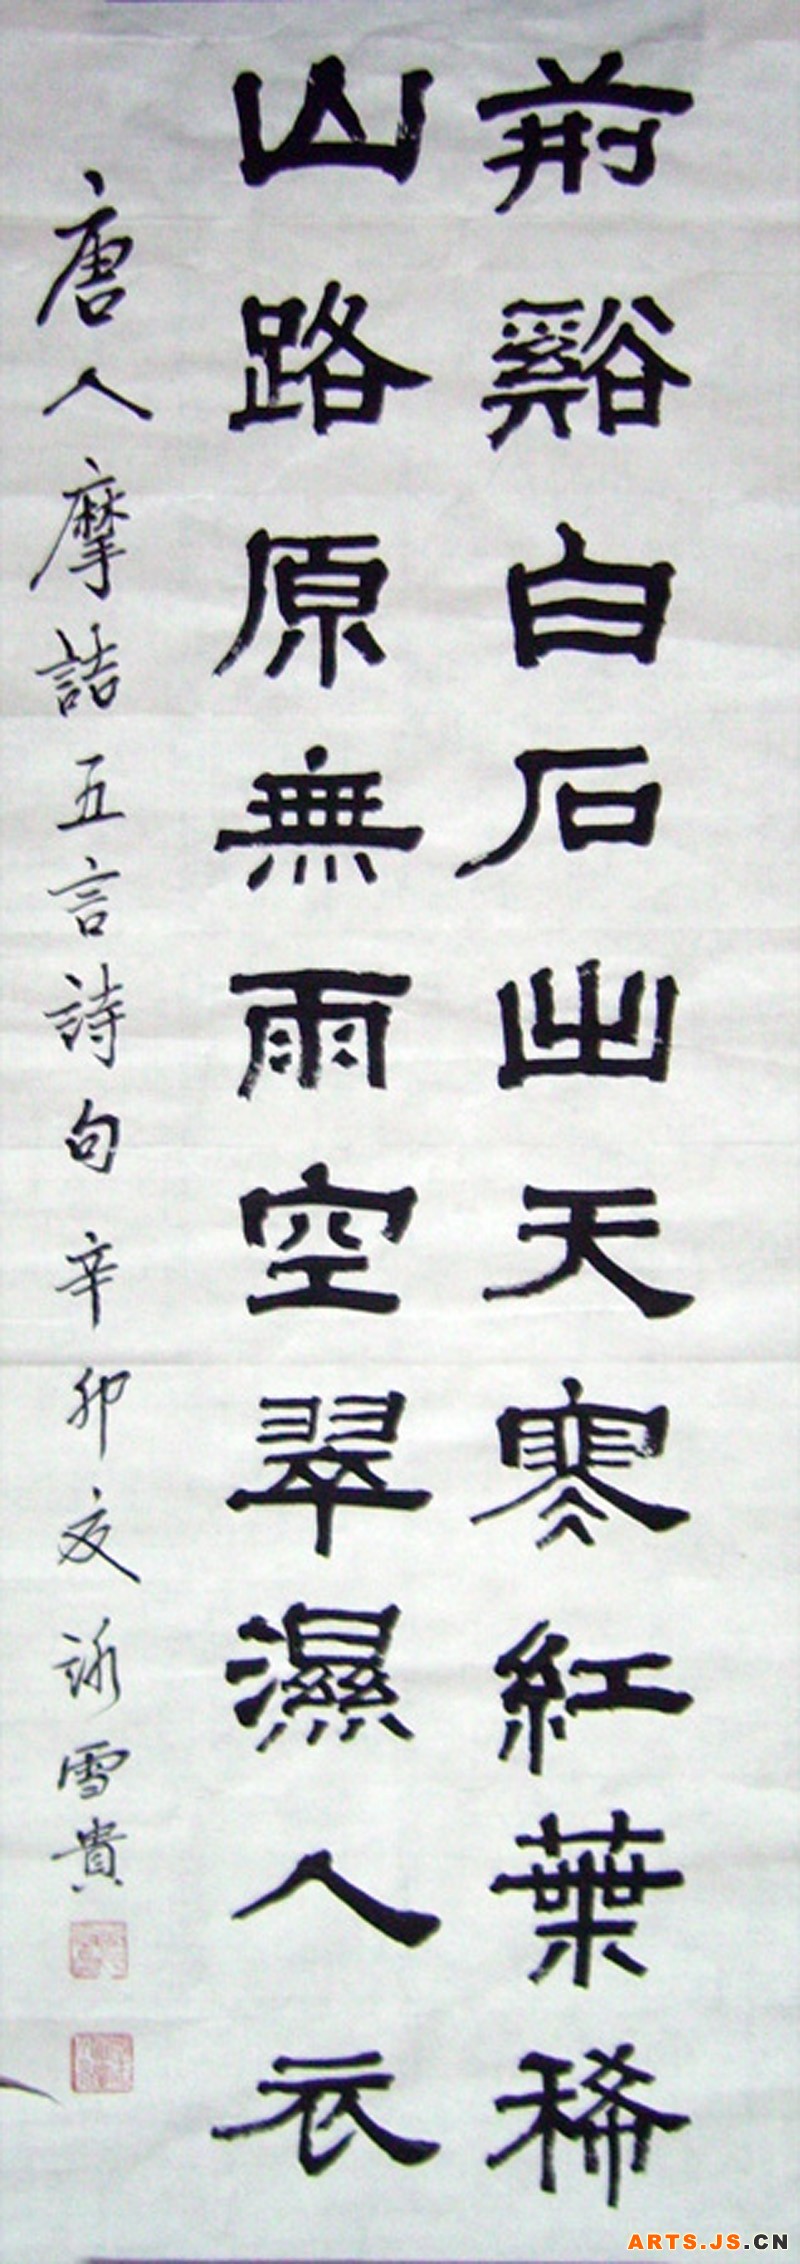 荊谿白石出天寒紅葉稀
山路原無雨空翠濕人衣
唐人摩詰五言詩句辛卯夏詠雪貴
ARTS.JS.CN